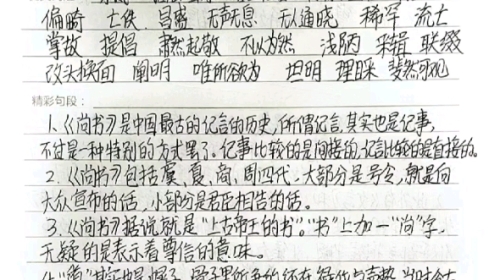 倔畸 亡佚 昌盛 无声无息 无人通晓 稀罕 流亡
掌故 提倡 肃然起敬 不以为然 浅陋 采辑 联缀
改头换面 阐明 唯所欲为 坦明 理睬 斐然可观
精彩句段:
1.《尚书》是中国最古的记言的历史,所谓记言,其实也是记事,
不过是一种特别的方式罢了。记事比较的是间接的,记言比较的是直接的。
2.《尚书》包括虞、夏、商、周四代,大部分是号令,就是向
大众宣布的话,小部分是君臣相告的话。
3.《尚书》据说就是“上古帝王的书”。“书”上加一“尚”字,
无疑的是表示着尊信的意味。